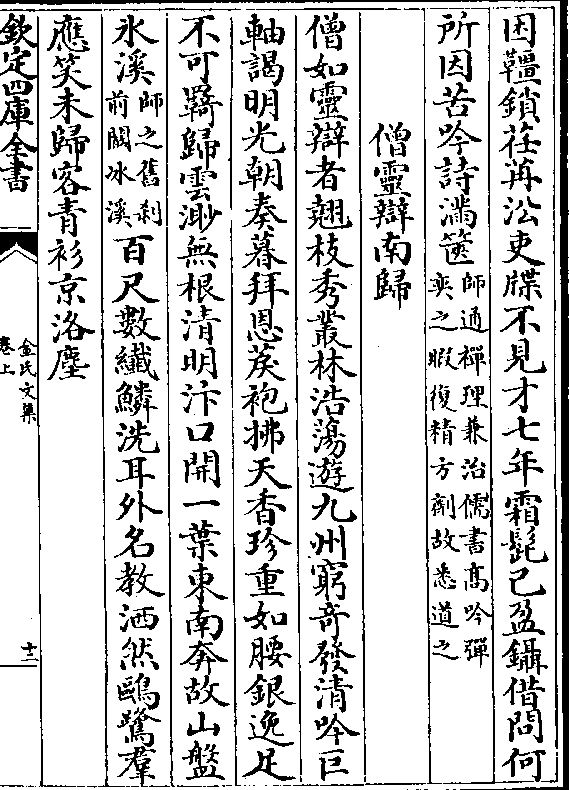 困韁鎖荏苒汎吏牒不見才七年霜髭已盈鑷借問何
所因苦吟詩滿篋師通禪理兼治儒書髙吟彈
奕之暇復精方劑故悉道之
僧靈辯南歸
僧如靈辯者翹枝秀叢林浩蕩遊九州窮竒發清吟巨
軸謁明光朝奏暮拜恩莪袍拂天香珍重如腰銀逸足
不可羇歸雲渺無根清明汴口開一葉東南奔故山盤
氷溪師之舊刹
前闞冰溪百尺數纎鱗洗耳外名教洒然鷗鷺羣
應笑未歸客青衫京洛塵
欽定四庫全書
金氏文集
卷上
十二